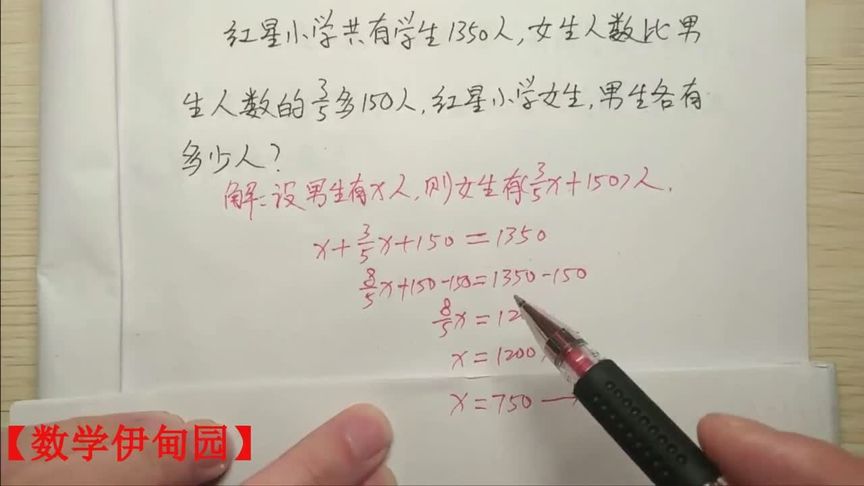 红星小学共有学生1350人,女生人数比男
生人数的3/5多150人,红星小学女生,男生各有
多少人?
解:设男生有x人,则女生有(3/5x+150)人.
x+3/5x+150=1350
8/5x+150-150=1350-150
8/5x=12
x=1200
x=750
【数学伊甸园】